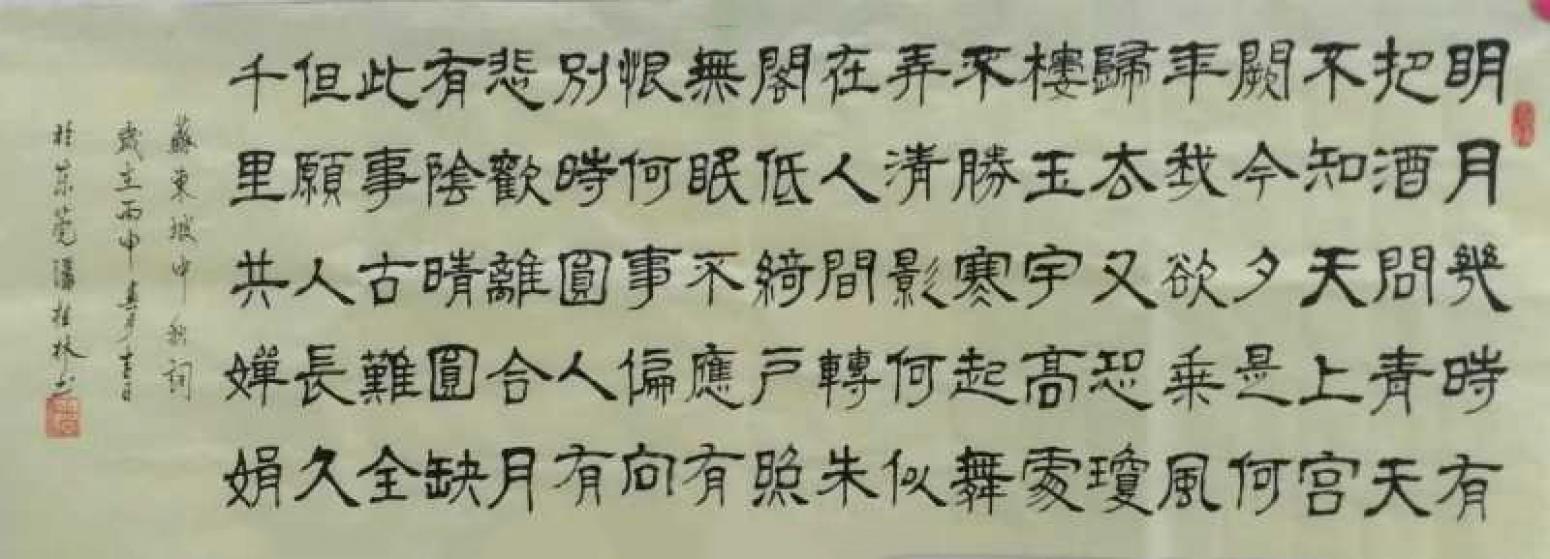 明月幾時有
把酒問青天
不知天上宮
闕今夕是何
年我欲乘風
歸去又恐瓊
樓玉宇高處
不勝寒起舞
弄清影何似
在人間轉朱
閣低綺戶照
無眠不應有
恨何事偏向
別時圓人有
悲歡離合月
有陰晴圓缺
此事古難全
但願人長久
千里共嬋娟
蘇東坡中秋詞
歲在丙申月吉日
於東莞潘桂林书